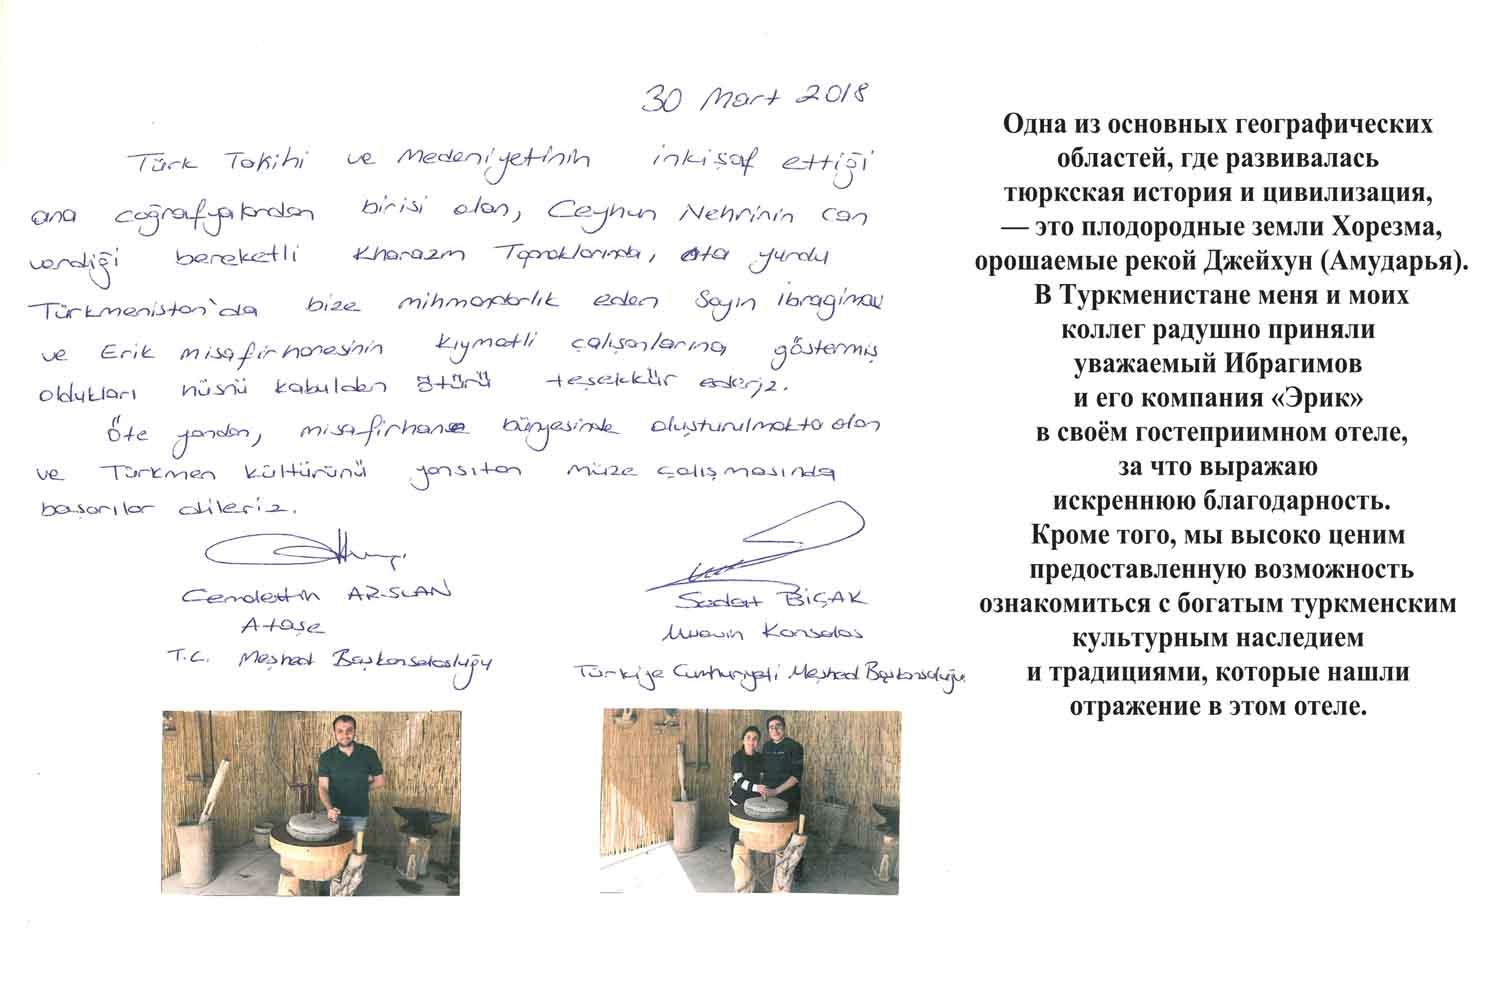 30 Mart 2018
Türk Takihi ve Medeniyetinin inkişaf ettiği
ana coğrafyalardan birisi olan, Ceyhun Nehrinin can
verdiği bereketli Kharazm Topraklarında, Ata yurdu
Türkmenistan'da bize mihmandarlık eden Sayın İbragimov
ve Erik misafirhanesinin kıymetli çalışanlarına göstermiş
oldukları hüsnü kabulden ötürü teşekkür ederiz.
Öte yandan, misafirhane bünyesinde oluşturulmakta olan
ve Türkmen kültürünü yansıtan müze çalışmasında
başarılar dileriz.
Cemalettin ARSLAN
Ataşe
T.C. Meşhed Başkonsolosluğu
Sedat BIÇAK
Muavin Konsolos
Türkiye Cumhuriyeti Meşhed Başkonsolosluğu
Одна из основных географических
областей, где развивалась
тюркская история и цивилизация,
— это плодородные земли Хорезма,
орошаемые рекой Джейхун (Амударья).
В Туркменистане меня и моих
коллег радушно приняли
уважаемый Ибрагимов
и его компания «Эрик»
в своём гостеприимном отеле,
за что выражаю
искреннюю благодарность.
Кроме того, мы высоко ценим
предоставленную возможность
ознакомиться с богатым туркменским
культурным наследием
и традициями, которые нашли
отражение в этом отеле.